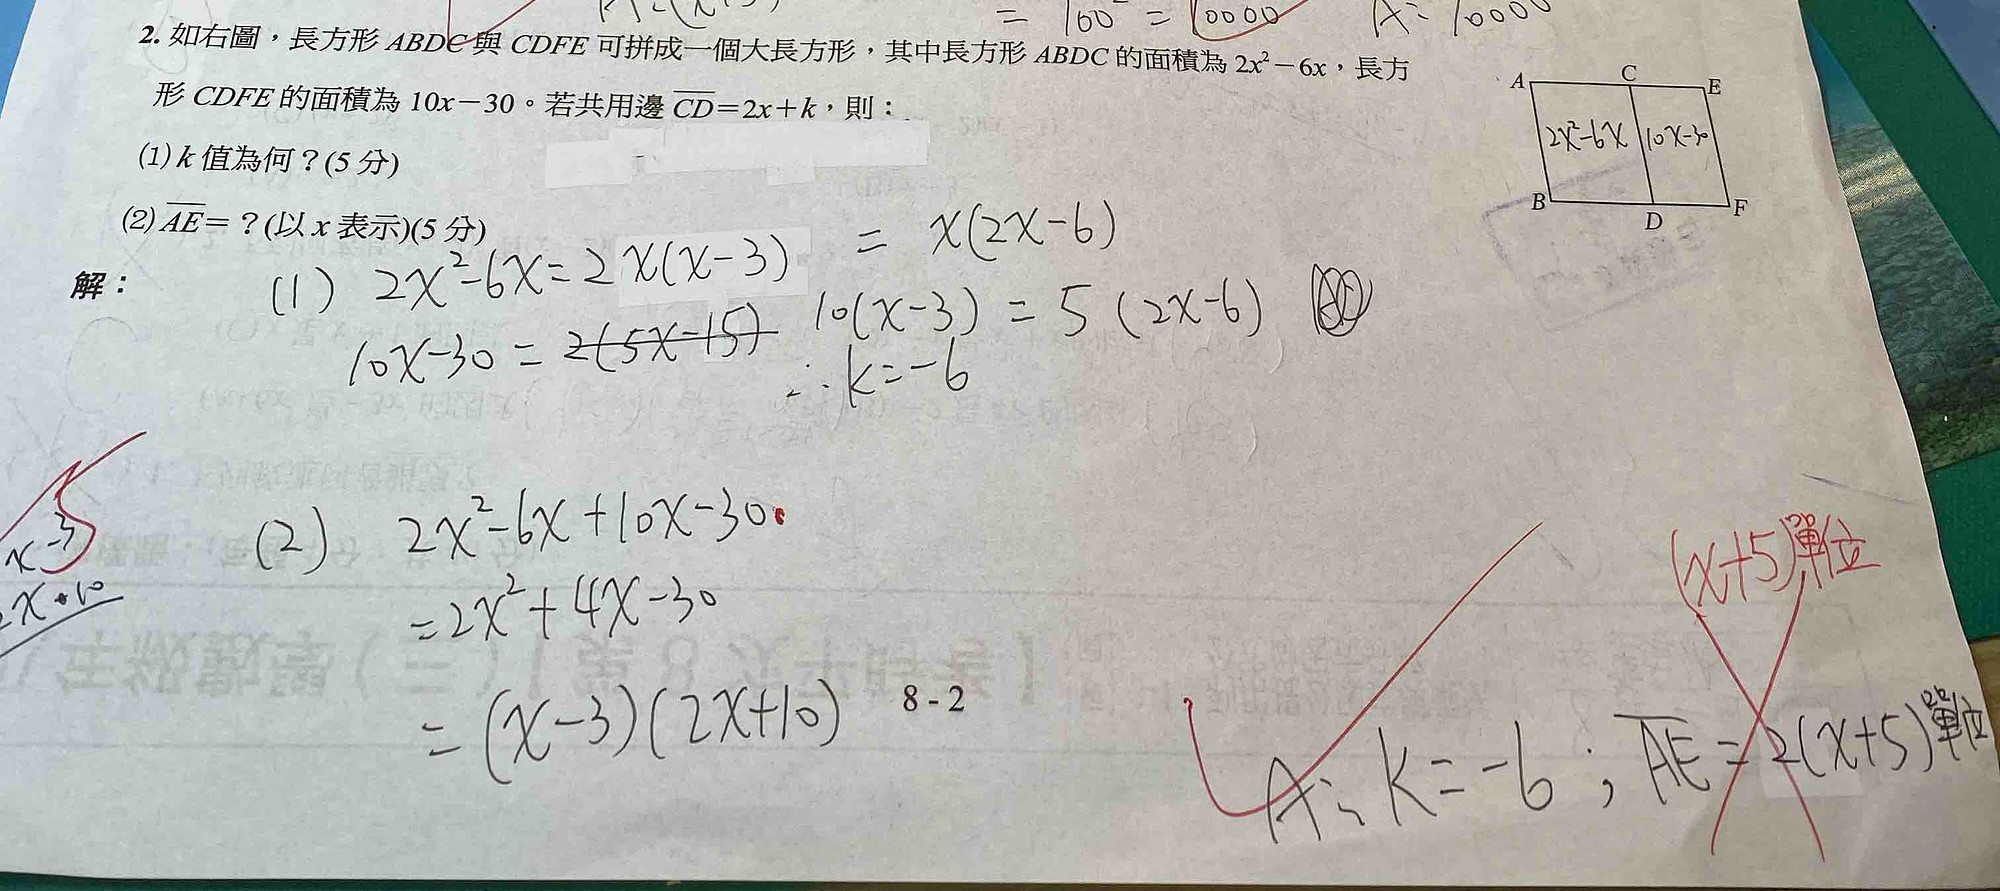 = 100² = 10000 A: 10000
2. 如右圖，長方形 ABDC 與 CDFE 可拼成一個大長方形，其中長方形 ABDC 的面積為 2x²－6x，長方
形 CDFE 的面積為 10x－30。若共用邊 CD＝2x＋k，則：
(1) k 值為何？(5 分)
(2) AE＝？(以 x 表示)(5 分)
A C E
2x²-6x 10x-30
B D F
解：
(1) 2x²-6x=2x(x-3) = x(2x-6)
10x-30 = 2(5x-15) 10(x-3) = 5(2x-6)
∴k=-6
x -3
2x +10
(2) 2x²-6x+10x-30
=2x²+4x-30
=(x-3)(2x+10)
8-2
(x+5)單位
A: k=-6；AE=2(x+5)單位